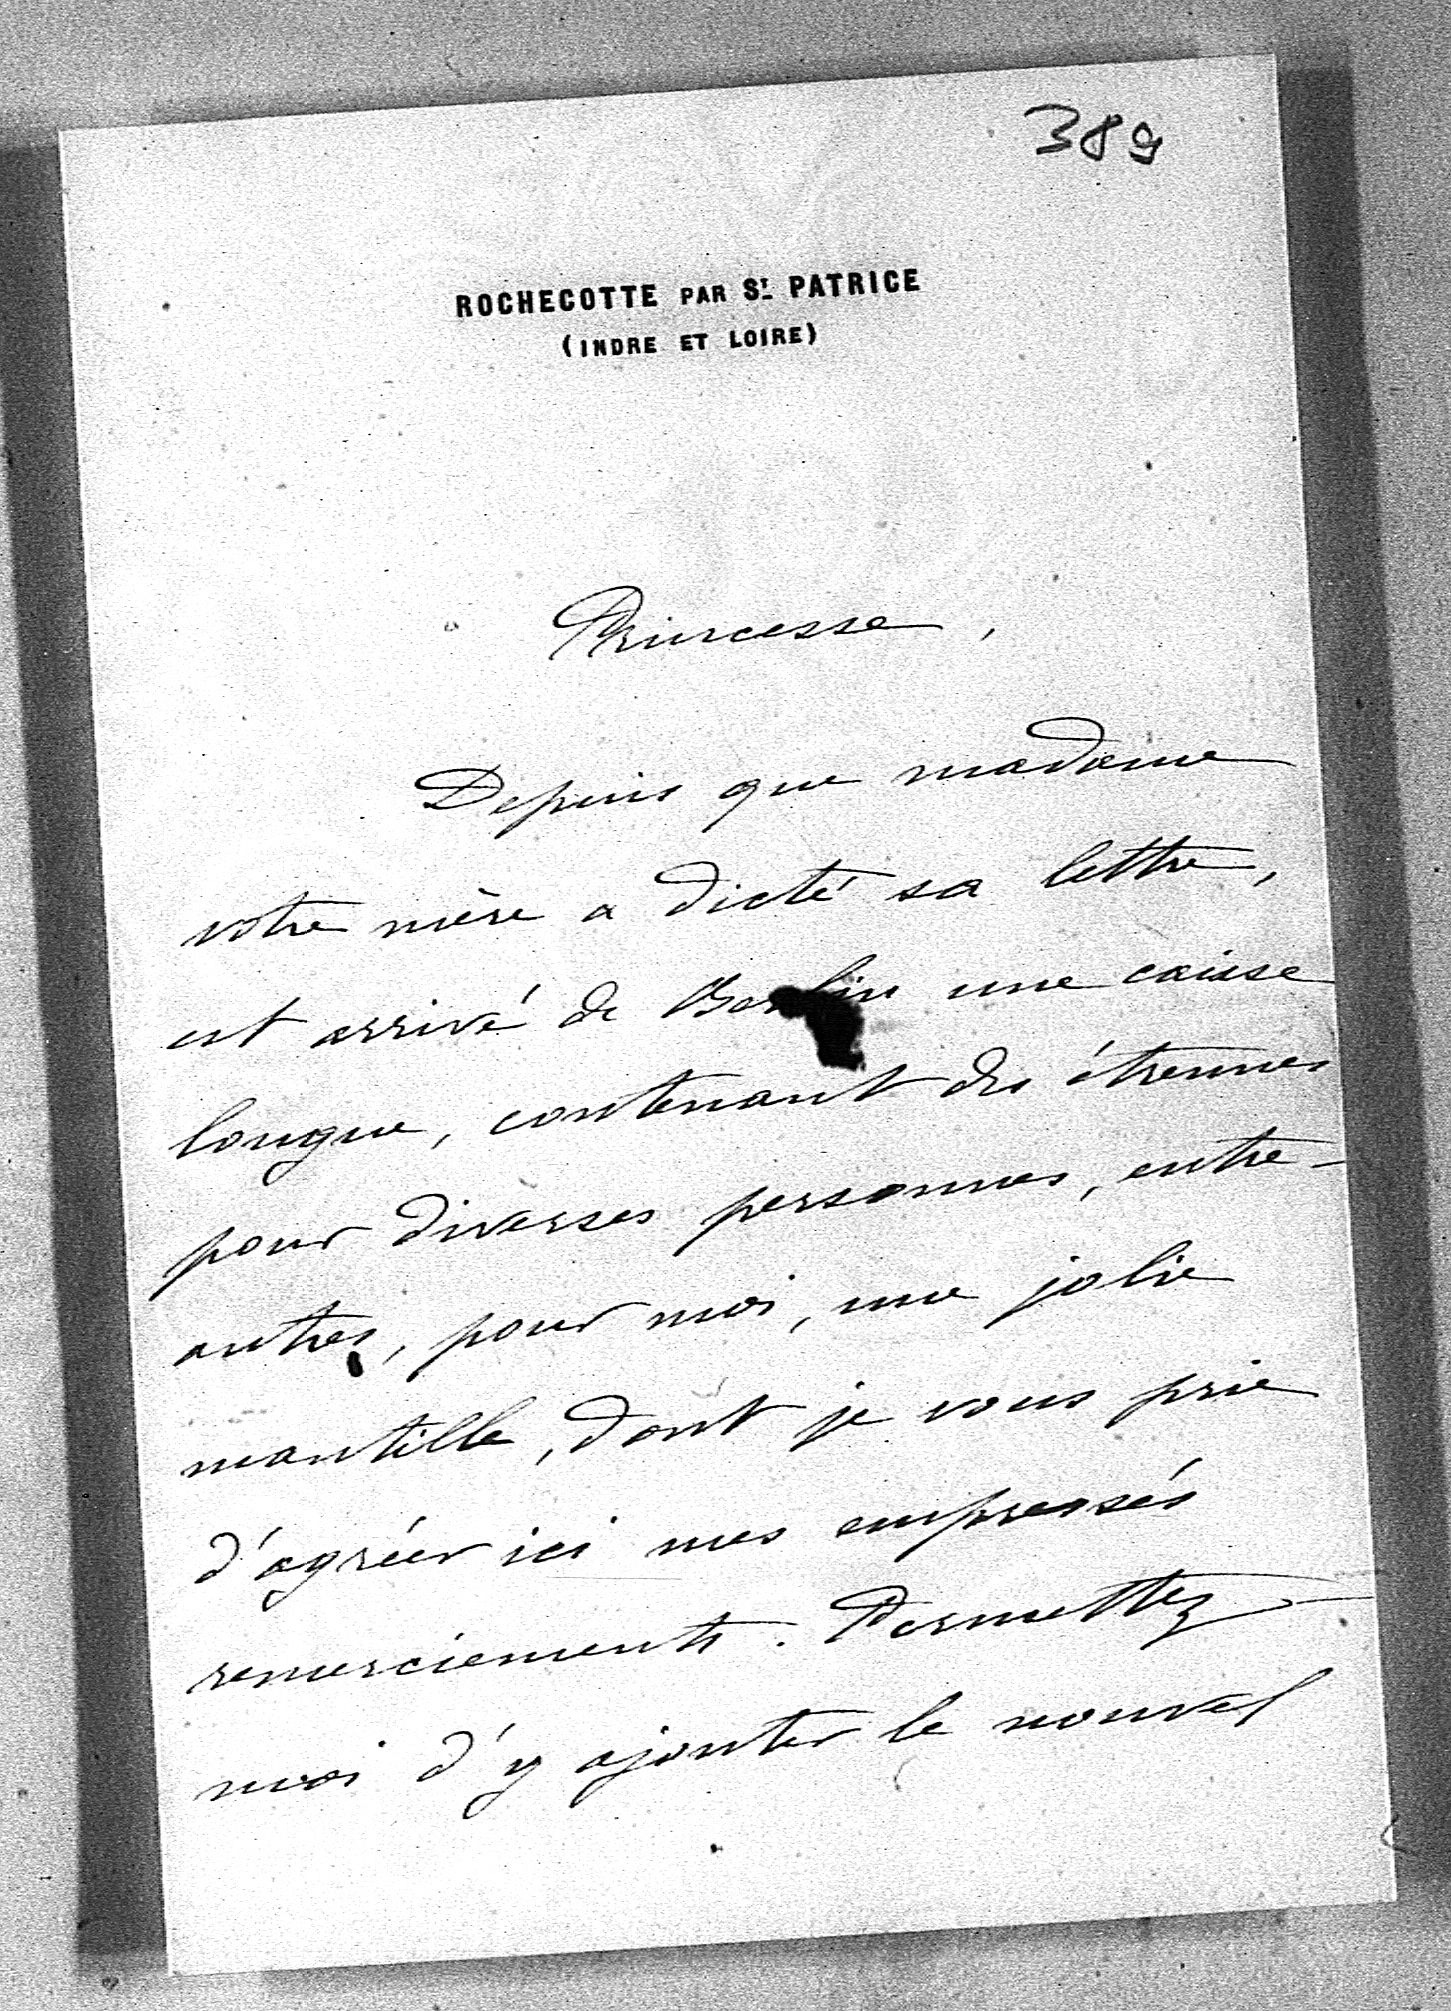 389
ROCHECOTTE PAR ST. PATRICE
(INDRE ET LOIRE)
Princesse,
Depuis que madame
votre mère a dicté sa lettre,
est arrivé de Berlin une caisse
longue, contenant des étrennes
pour diverses personnes, entre-
autres, pour moi, une jolie
mantille, dont je vous prie
d'agréer ici mes empressés
remerciements. Permettez-
moi d'y ajouter le nouvel